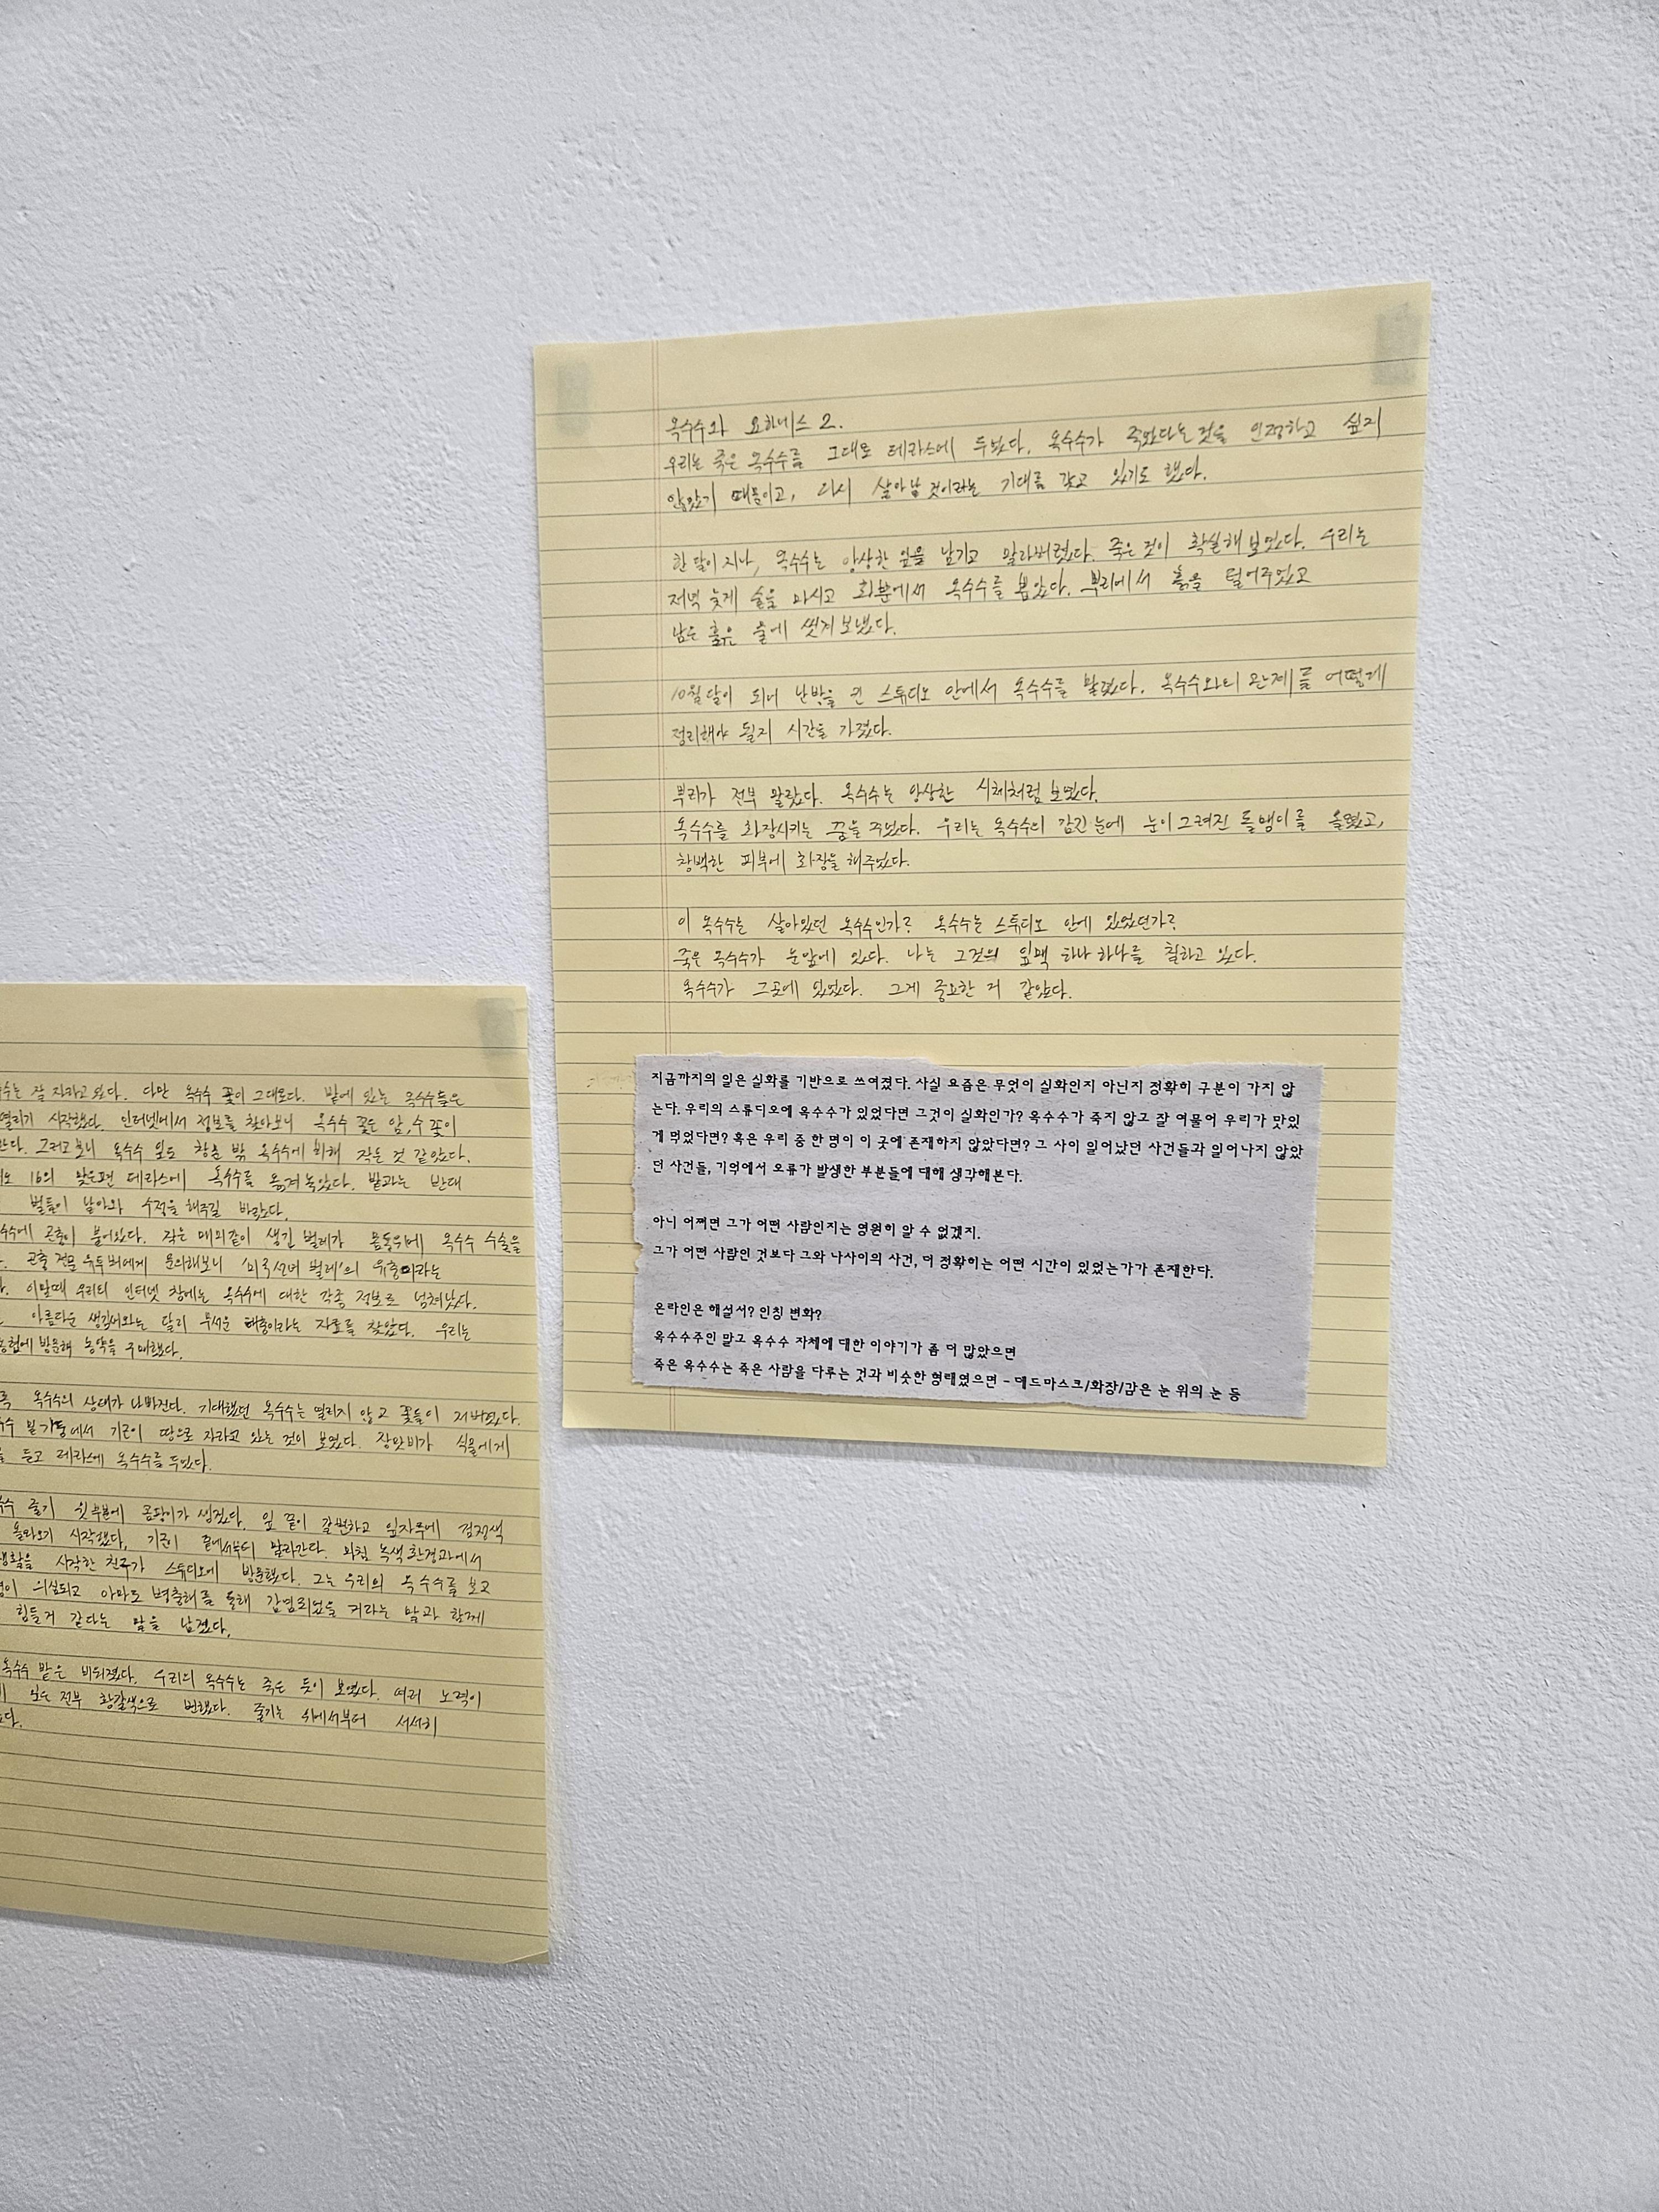 옥수수와 요하네스 2.
우리는 죽은 옥수수를 그대로 테라스에 두었다. 옥수수가 죽었다는 것을 인정하고 싶지
않았기 때문이고, 다시 살아날 것이라는 기대를 갖고 있기도 했다.
한 달이 지나, 옥수수는 앙상한 잎을 남기고 말라버렸다. 죽은 것이 확실해 보였다. 우리는
저녁 늦게 술을 마시고 화분에서 옥수수를 뽑았다. 뿌리에서 흙을 털어주었고
남은 흙은 물에 씻겨 보냈다.
10월달이 되어 난방을 켠 스튜디오 안에서 옥수수를 말렸다. 옥수수와의 관계를 어떻게
정리해야 될지 시간을 가졌다.
뿌리가 전부 말랐다. 옥수수는 앙상한 시체처럼 보였다.
옥수수를 화장시키는 꿈을 꾸었다. 우리는 옥수수의 감긴 눈에 눈이 그려진 돌맹이를 올렸고,
창백한 피부에 화장을 해주었다.
이 옥수수는 살아있던 옥수수인가? 옥수수는 스튜디오 안에 있었던가?
죽은 옥수수가 눈앞에 있다. 나는 그것의 잎맥 하나 하나를 칠하고 있다.
옥수수가 그곳에 있었다. 그게 중요한 거 같았다.
지금까지의 일은 실화를 기반으로 쓰여졌다. 사실 요즘은 무엇이 실화인지 아닌지 정확히 구분이 가지 않
는다. 우리의 스튜디오에 옥수수가 있었다면 그것이 실화인가? 옥수수가 죽지 않고 잘 여물어 우리가 맛있
게 먹었다면? 혹은 우리 중 한 명이 이 곳에 존재하지 않았다면? 그 사이 일어났던 사건들과 일어나지 않았
던 사건들, 기억에서 오류가 발생한 부분들에 대해 생각해본다.
아니 어쩌면 그가 어떤 사람인지는 영원히 알 수 없겠지.
그가 어떤 사람인 것보다 그와 나사이의 사건, 더 정확히는 어떤 시간이 있었는가가 존재한다.
온라인은 해설서? 인칭 변화?
옥수수주인 말고 옥수수 자체에 대한 이야기가 좀 더 많았으면
죽은 옥수수는 죽은 사람을 다루는 것과 비슷한 형태였으면 - 데드마스크/화장/감은 눈 위의 눈 등
잘 자라고 있다. 다만 옥수수 꽃이 그대로다. 밭에 있는 옥수수들은
열리기 시작했다. 인터넷에서 정보를 찾아보니 옥수수 꽃은 암,수 꽃이
그러고보니 옥수수 잎도 창문 밖 옥수수에 비해 작은 것 같았다.
16의 맞은편 테라스에 옥수수를 옮겨놓았다. 밭과는 반대
벌들이 날아와 수정을 해주길 바랐다.
곤충이 붙어있다. 작은 매미같이 생긴 벌레가 옥수수 수술을
곤충 전문 유투버에게 문의해보니 '미국선녀 벌레'의 유충이라는
이맘때 우리의 인터넷 창에는 옥수수에 대한 각종 정보로 넘쳐났다.
아름다운 생김새와는 달리 무서운 해충이라는 자료를 찾았다. 우리는
방문해 농약을 구매했다.
옥수수의 상태가 나빠진다. 기대했던 옥수수는 열리지 않고 꽃들이 져버렸다.
밑기둥에서 기근이 땅으로 자라고 있는 것이 보였다. 장맛비가 식물에게
듣고 테라스에 옥수수를 두었다.
줄기 윗부분에 곰팡이가 생겼다. 잎 끝이 갈변하고 잎자루에 검정색
올라오기 시작했다, 기근이 끝에서부터 말라간다. 마침 녹색환경과에서
시작한 친구가 스튜디오에 방문했다. 그는 우리의 옥수수를 보고
의심되고 아마도 병충해를 통해 감염되었을 거라는 말과 함께
힘들거 같다는 말을 남겼다.
옥수수 밭은 비워졌다. 우리의 옥수수는 죽은 듯이 보였다. 여러 노력이
잎은 전부 황갈색으로 변했다. 줄기는 위에서부터 서서히